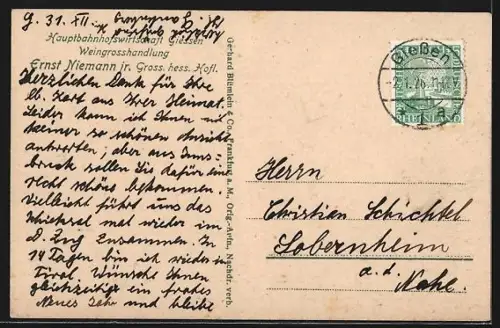 G. 31. XII.
Hauptbahnhofswirtschaft Giessen
Weingrosshandlung
Ernst Niemann jr. Gross. hess. Hofl.
Herzlichen Dank für Ihre
lb. Kart aus Ihrer Heimat.
Leider kann ich Ihnen mit
keiner so schönen Ansicht
antworten; aber aus Inns-
bruck sollen Sie dafür ein
recht schöns bekommen.
Vielleicht führt uns das
Schicksal mal wieder im
D. Zug zusammen. In
14 Tagen bin ich wieder in
Tirol. Wünsche Ihnen
gleichzeitig ein frohes
Neues Jahr und bleibe
Gerhard Blümlein & Co., Frankfurt a. M., Orig.-Aufn. Nachdr. verb.
Gießen
1.26.11-12
* 1 a
RHEINLAND
Herrn
Christian Schichtel
Sobernheim
a. d.
Nahe.